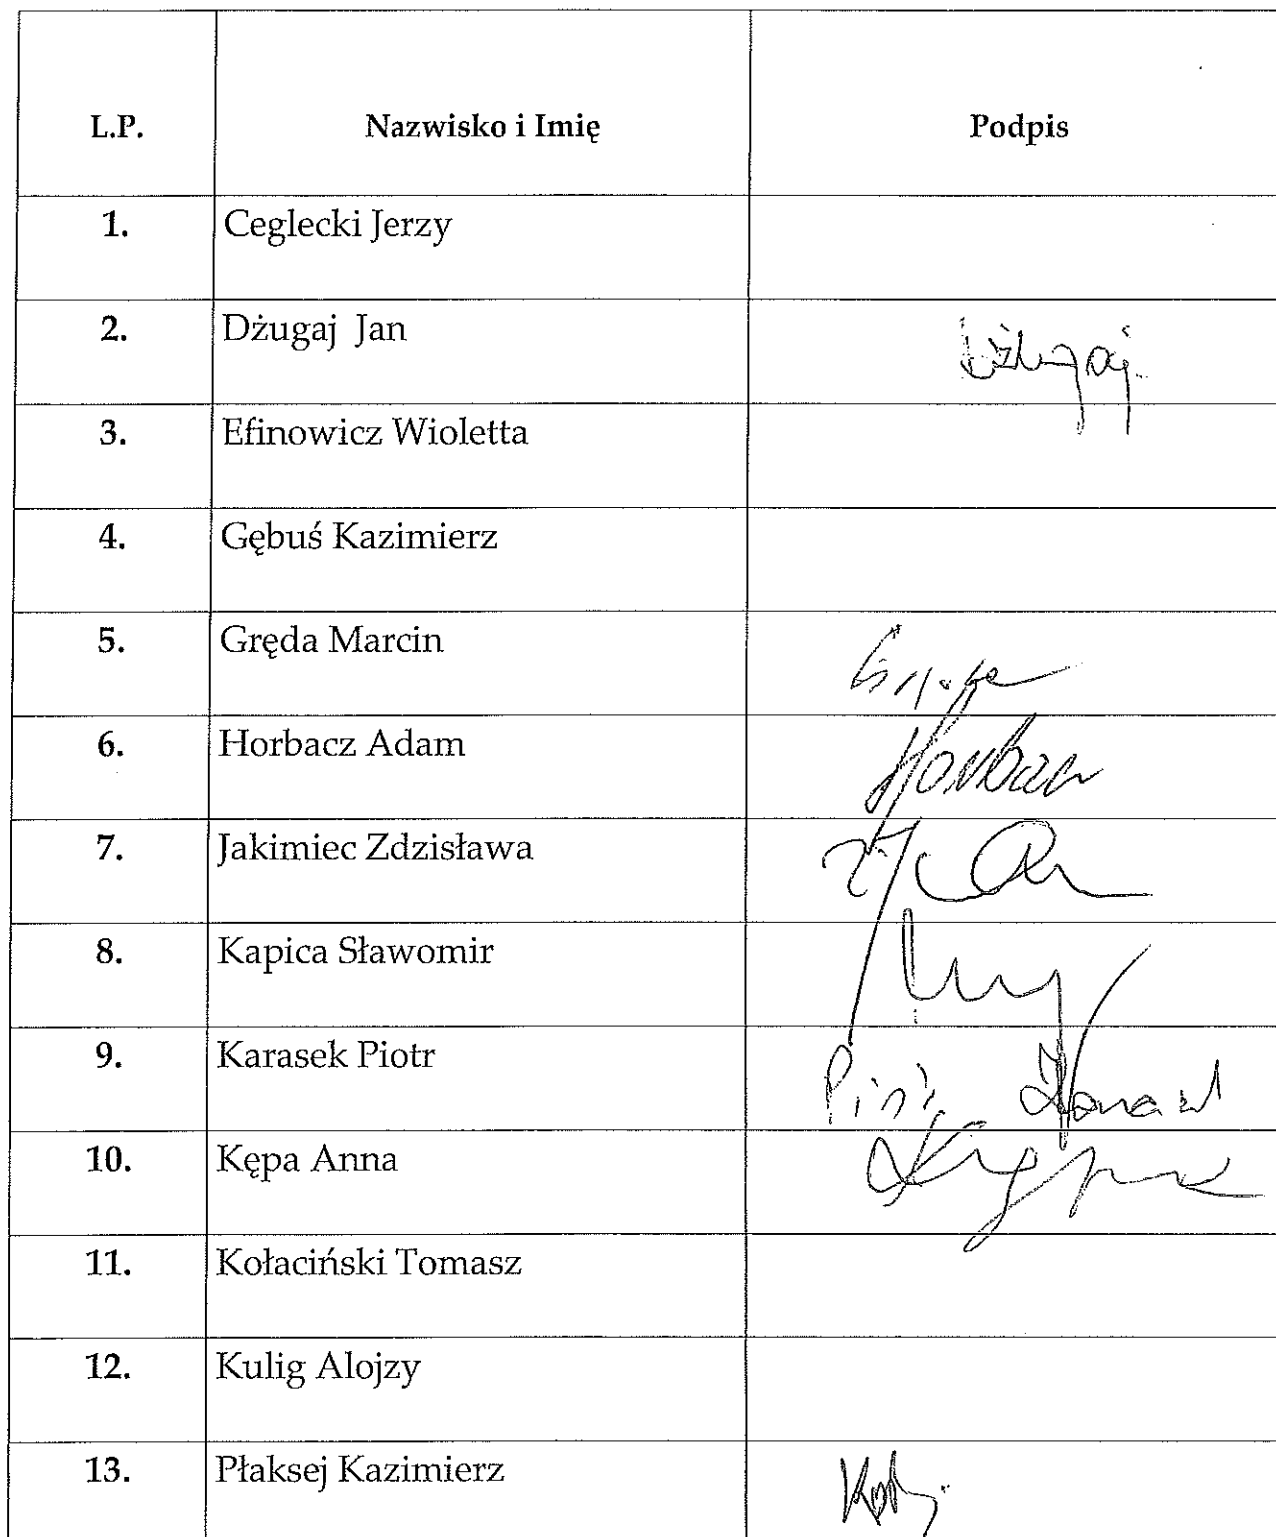 L.P. Nazwisko i Imię Podpis
1. Ceglecki Jerzy
2. Dżugaj Jan Dżugaj
3. Efinowicz Wioletta
4. Gębuś Kazimierz
5. Gręda Marcin
6. Horbacz Adam Horbacz
7. Jakimiec Zdzisława
8. Kapica Sławomir
9. Karasek Piotr
10. Kępa Anna
11. Kołaciński Tomasz
12. Kulig Alojzy
13. Płaksej Kazimierz